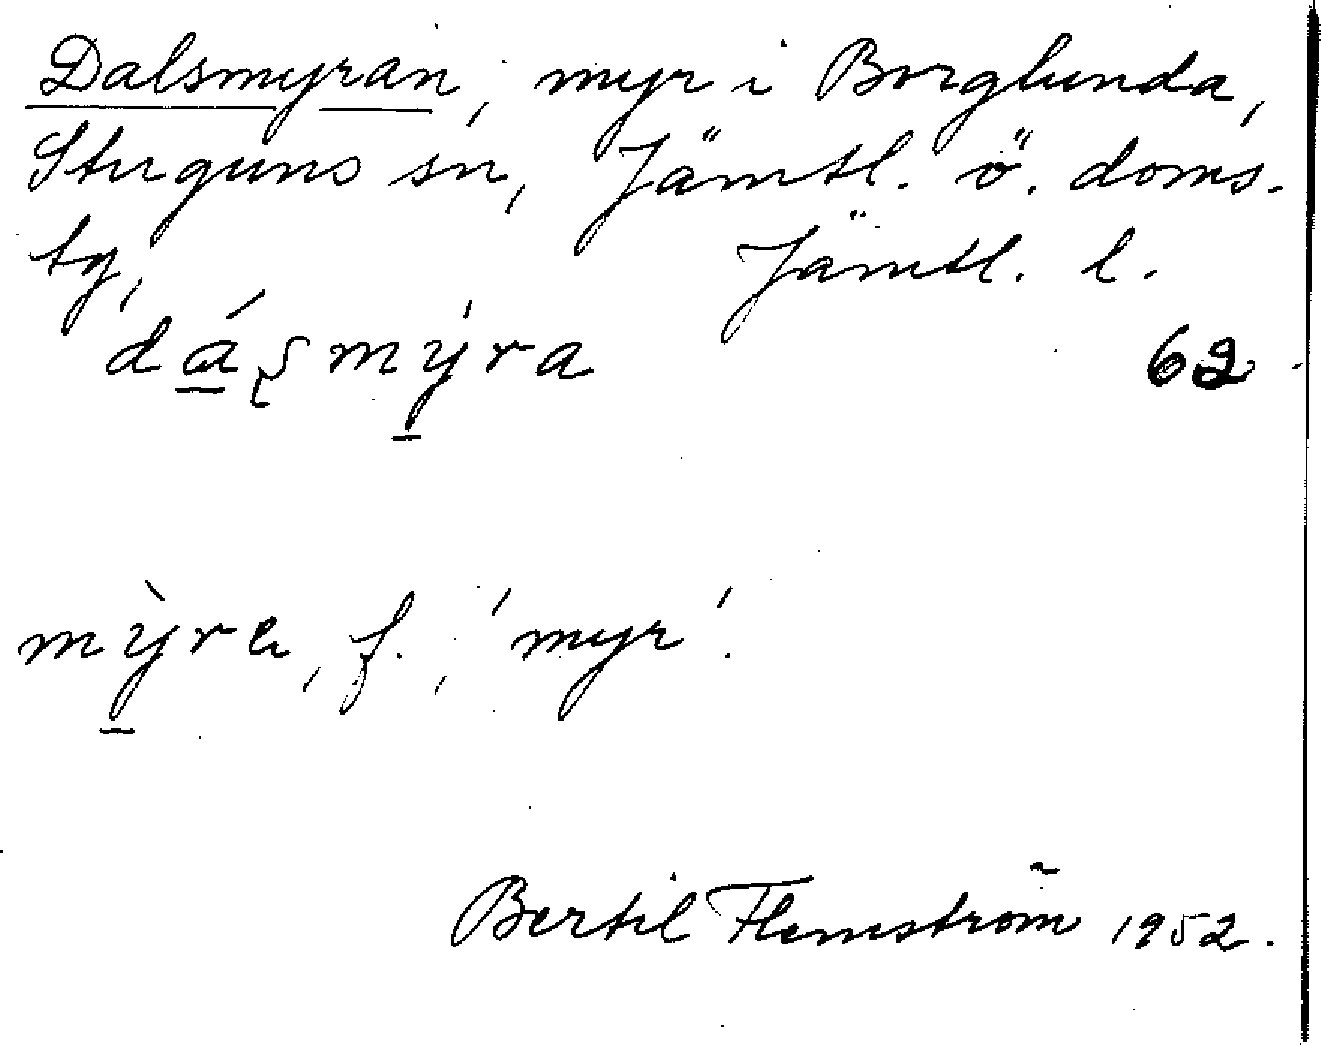 Dalsmyran, myr i Borglunda,
Stuguns sn, Jämtl. ö. doms.
tg, Jämtl. l.
dáʂmýra 62
mỳrɐ, f., 'myr'.
Bertil Flemström 1952.